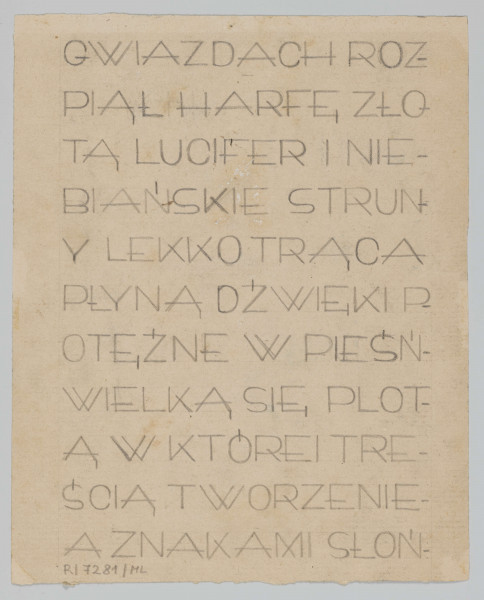 GWIAZDACH ROZ-
PIĄŁ HARFĘ ZŁO
TĄ LUCIFER I NIE-
BIAŃSKIE STRUN-
Y LEKKO TRĄCA
PŁYNĄ DŹWIĘKI P-
OTĘŻNE W PIEŚŃ-
WIELKĄ SIĘ PLOT-
Ą W KTÓREJ TRE-
ŚCIĄ TWORZENIE-
A ZNAKAMI SŁOŃ-
RI 7281/ML